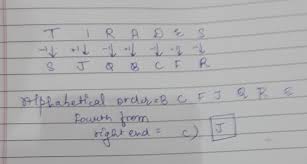 T I R A D E S
-1↓ +1↓ -1↓ +1↓ -1↓ +1↓ -1↓
S J Q B C F R
Alphabetical order = B C F J Q R S
Fourth from
right end = c) J